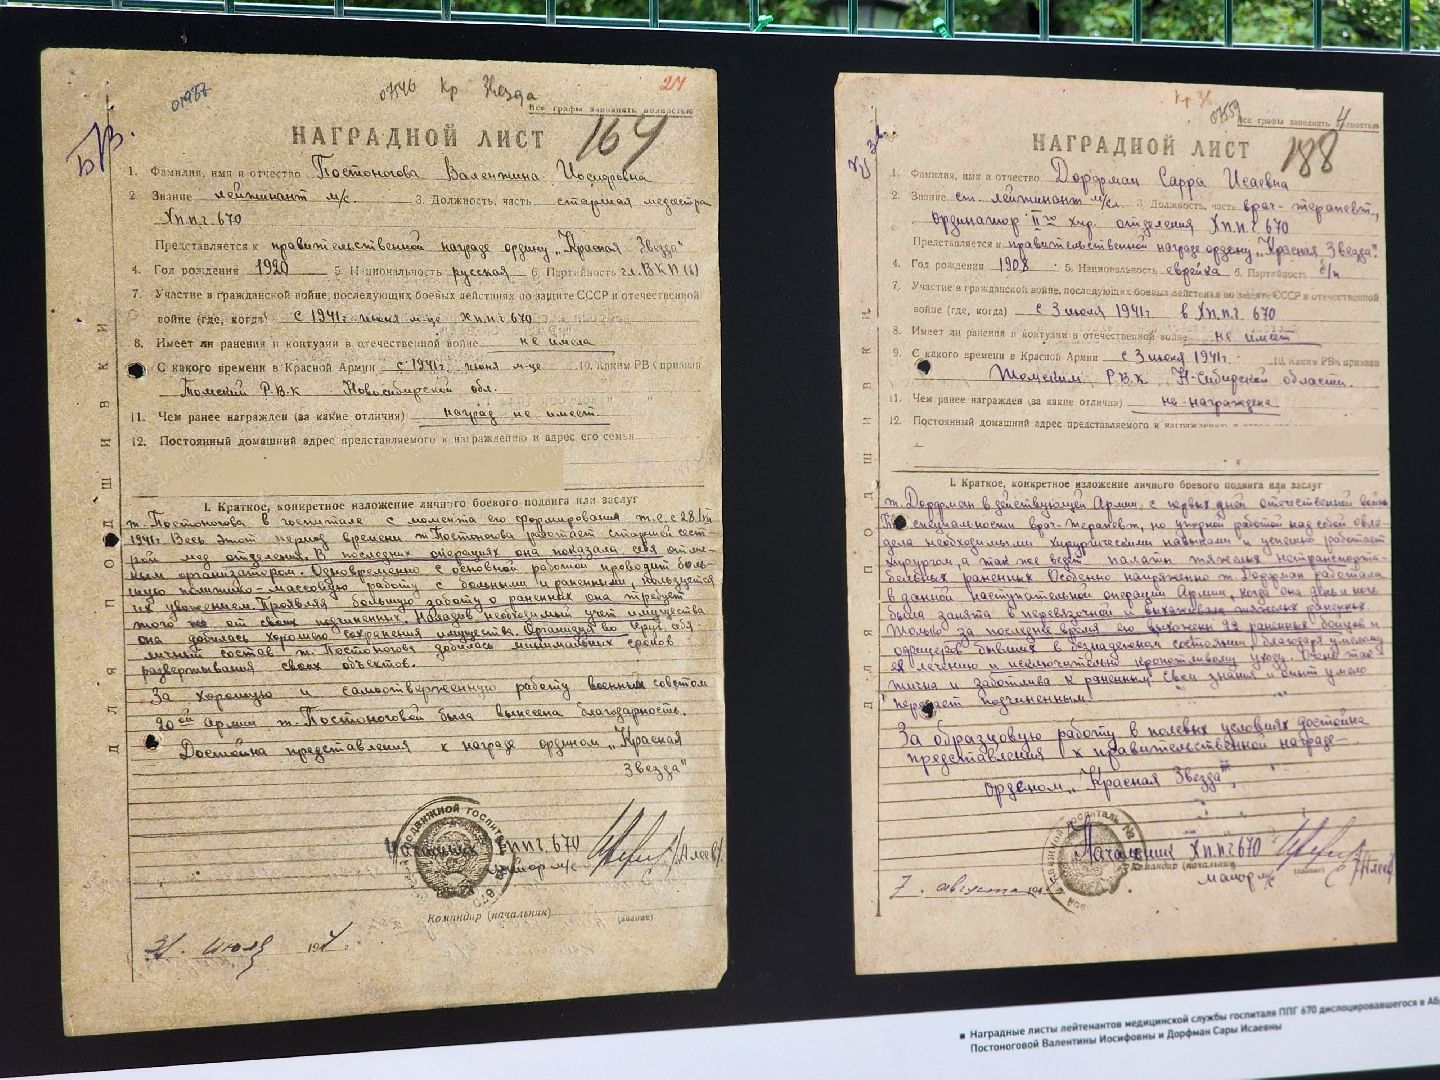 01987
07546 Кр Звезда
24
Все графы заполнять полностью
НАГРАДНОЙ ЛИСТ
164
1. Фамилия, имя и отчество Постоногова Валентина Иосифовна
2 Звание лейтинант м/с. 3. Должность, часть старшая медсестра
Хппг 670
Представляется к правительственной награде ордину „Красная Звезда"
4. Год рождения 1920 5. Национальность русская 6. Партийность чл. ВКП(б)
7. Участие в гражданской войне, последующих боевых действиях по защите СССР и отечественной
войне (где, когда) с 1941г. июня м-це Хппг 670
8. Имеет ли ранения и контузии в отечественной войне не имела
9. С какого времени в Красной Армии с 1941г. июня м-це 10. Каким РВК призван
Томский Р.В.К Новосибирской обл.
11. Чем ранее награжден (за какие отличия) наград не имеет.
12. Постоянный домашний адрес представляемого к награждению и адрес его семьи
ДЛЯ ПОДШИВКИ
I. Краткое, конкретное изложение личного боевого подвига или заслуг
т. Постоногова в госпитале с момента его формирования т.е. с 28/VI
1941г. Весь этот период времени т. Постонова работает старшей сест-
рой мед. отделения. В последних операциях она показала себя отлич-
ным организатором. Одновременно с основной работой проводит боль-
шую политико-массовую работу с больными и ранеными, пользуется
их уважением. Проявляя большую заботу о раненных она требует
того же от своих подчиненных. Наладив необходимый учет имущества
она добилась хорошего сохранения имущества.
личный состав т. Постоногова добилась минимальных сроков
развертывания своих объектов.
За хорошую и самоотверженную работу военным советом
20ой Армии т. Постоноговой была вынесена благодарность.
Достойна представления к награде ордином „Красная
Звезда"
Начальник Хппг 670
майор м/с /Алеев/
Командир (начальник) (звание)
31. Июля 1944г.
Кр Зв.
07559
4
Все графы заполнять полностью
НАГРАДНОЙ ЛИСТ
188
1. Фамилия, имя и отчество Дорфман Сарра Исаевна
2. Звание ст. лейтинант м/сл. 3. Должность, часть врач-терапевт,
ординатор IIго хир. отделения Хппг 670
Представляется к правительственной награде ордену „Красная Звезда".
4. Год рождения 1908 5. Национальность еврейка 6. Партийность б/п
7. Участие в гражданской войне, последующих боевых действиях по защите СССР и отечественной
войне (где, когда) с 3 июля 1941г. в Хппг 670
8. Имеет ли ранения и контузии в отечественной войне не имеет
9. С какого времени в Красной Армии с 3 июля 1941г. 10. Каким РВК призван
Томским Р.В.К Н-Сибирской области.
11. Чем ранее награжден (за какие отличия) не-награждена
12. Постоянный домашний адрес представляемого к награждению и адрес его семьи
ДЛЯ ПОДШИВКИ
I. Краткое, конкретное изложение личного боевого подвига или заслуг
т. Дорфман в действующей Армии с первых дней отечественной войны
По специальности врач-терапевт, но упорной работой над собой овла-
дела необходимыми хирургическими навыками и успешно работает
хирургом, а так же ведет палаты тяжелых нетранспорта-
бельных раненных. Особенно напряженно т. Дорфман работала
в данной наступательной операции Армии, когда она день и ночь
была занята в перевязочной и выхаживала тяжелых раненных.
Только за последнее время его выхожены 22 раненных бойцов и
офицеров бывших в безнадежном состоянии, благодаря умелому
ея лечению и исключительно кропотливому уходу. Очень так
тична и заботлива к раненным. Свои знания и опыт умело
передает подчиненным.
За образцовую работу в полевых условиях достойна
представления к правительственной награде-
орденом „Красная Звезда"
Начальник Хппг 670
Командир (начальник) (звание)
майор м/с /Алеев/
7. августа 194
▪ Наградные листы лейтенантов медицинской службы госпиталя ППГ 670 дислоцировавшегося в Аб
Постоноговой Валентины Иосифовны и Дорфман Сары Исаевны